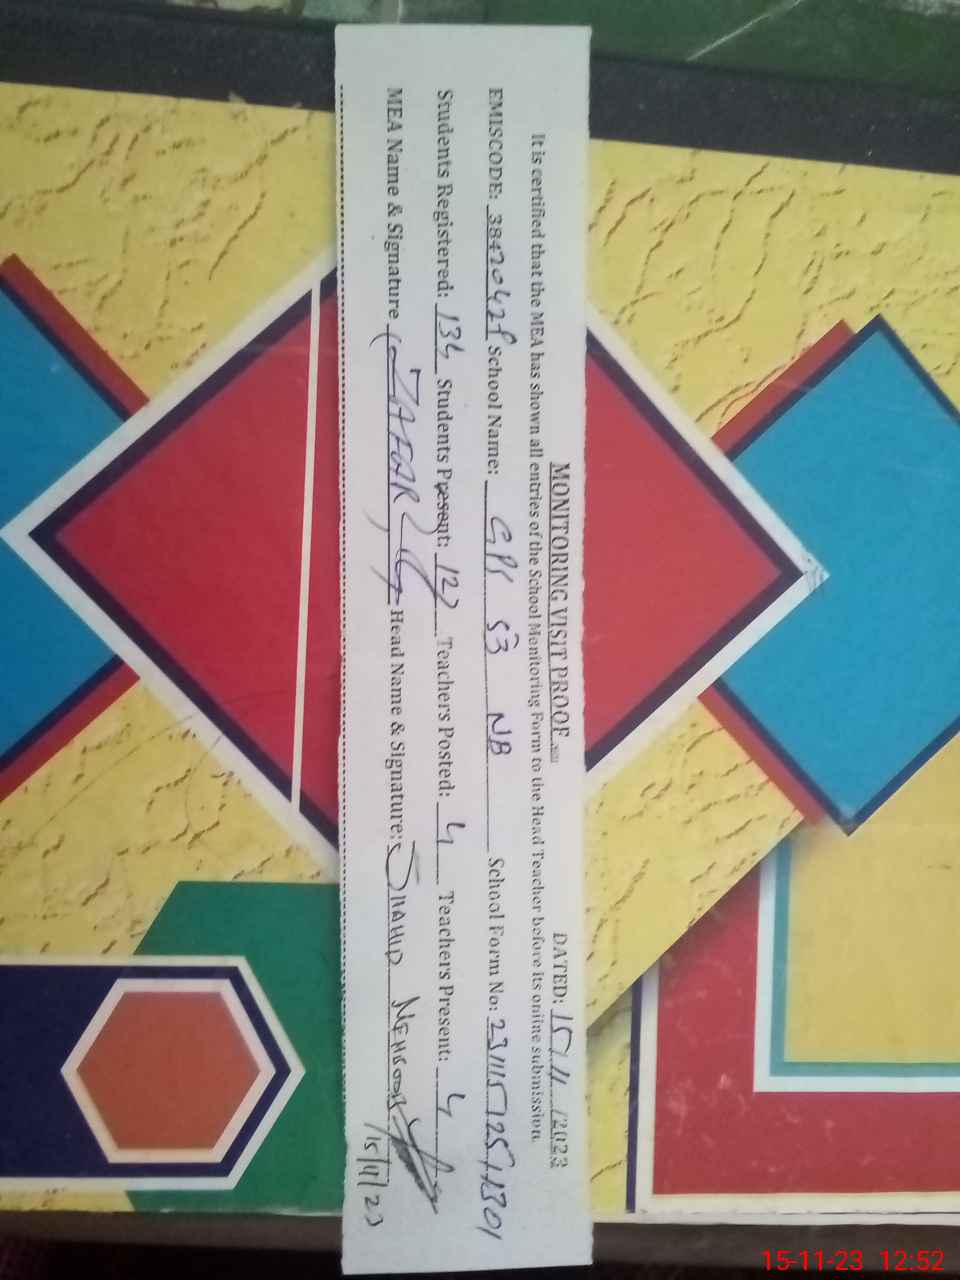 MONITORING VISIT PROOF DATED: 15/11/2023
It is certified that the MEA has shown all entries of the School Monitoring Form to the Head Teacher before its online submission.
EMISCODE: School Name: GPS 53 NB School Form No:
Students Registered: 134 Students Present: 127 Teachers Posted: 4 Teachers Present: 4
MEA Name & Signature (ZAFAR) Head Name & Signature: SHAHID MEHBOOB
15/11/23
15-11-23 12:52